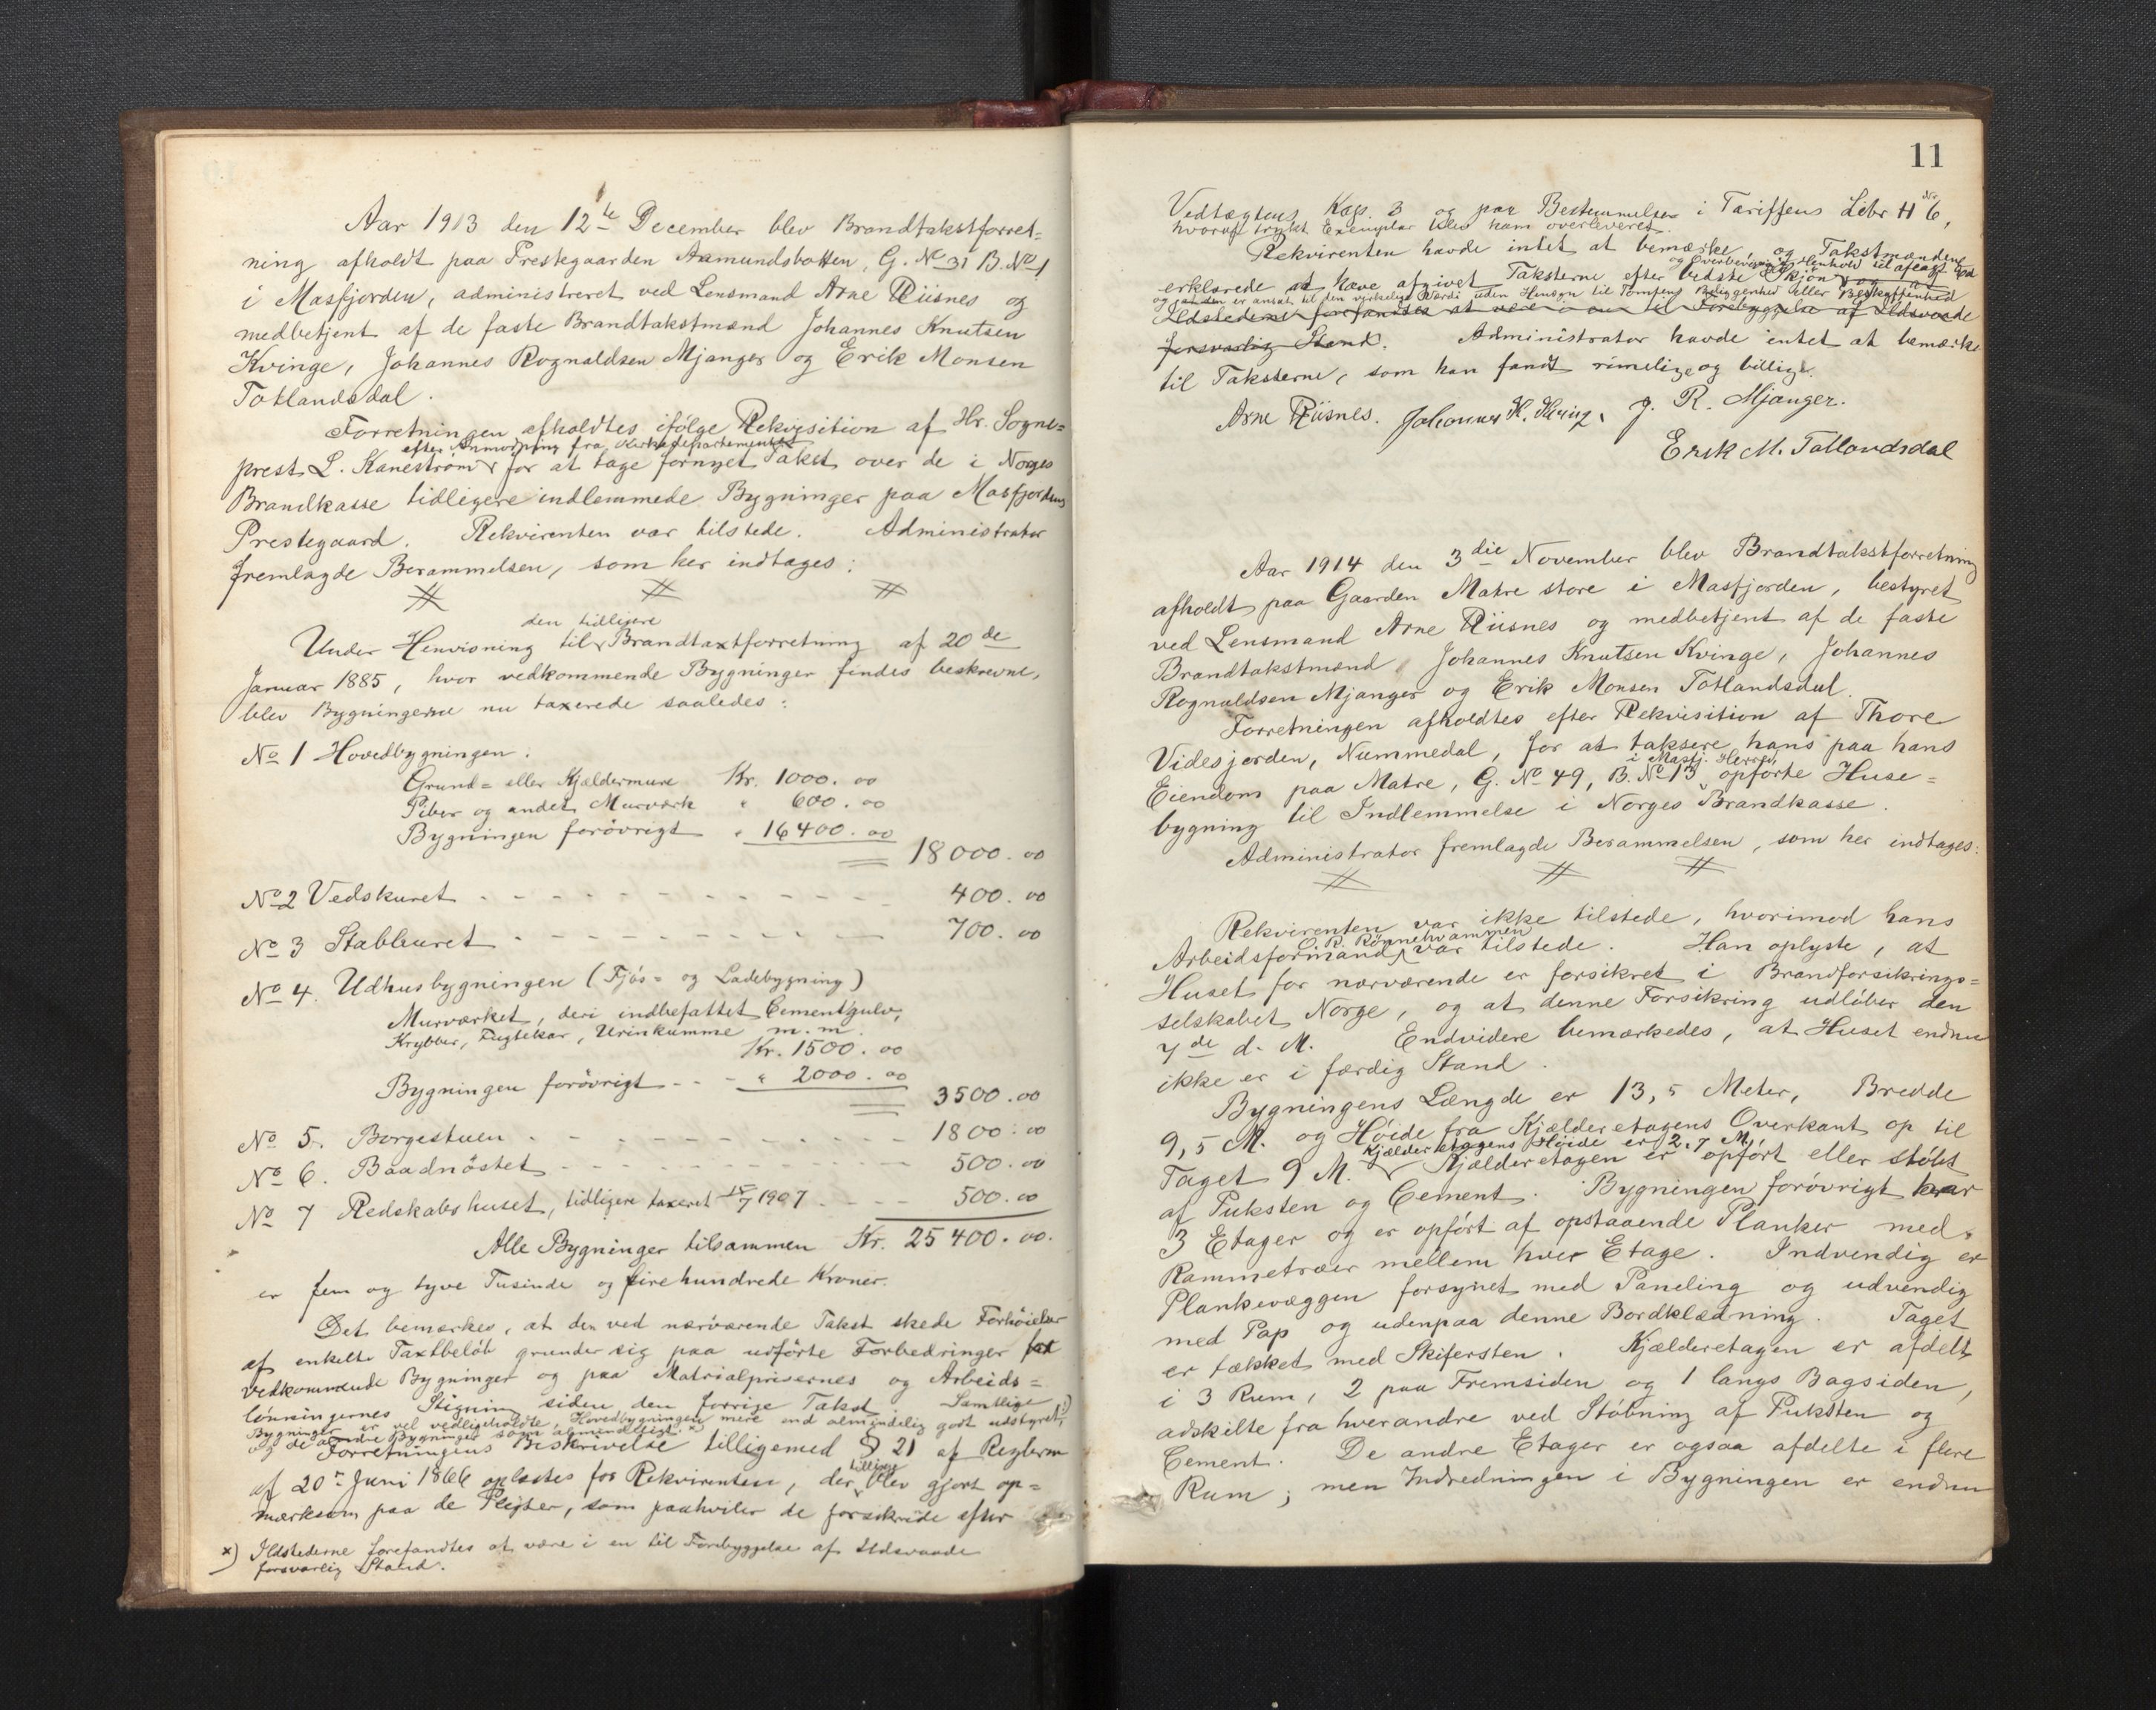 Aar 1913 den 12te December blev Brandtakstforret=
ning afholdt paa Prestegaarden Aamundsbotten, G. No 31 B. No 1
i Masfjorden, administreret ved Lensmand Arne Riisnes og
medbetjent af de faste Brandtakstmænd Johannes Knutsen
Kvinge, Johannes Rognaldsen Mjanger og Erik Monsen
Totlandsdal.
Forretningen afholdtes ifølge Rekvisition af Hr. Sogne=
efter Anmodning fra Kirkedepartementet
prest L. Kanestrøm for at tage fornyet Takst over de i Norges
Brandkasse tidligere indlemmede Bygninger paa Masfjordens
Prestegaard. Rekvirenten var tilstede. Administrator
fremlagde Berammelsen, som her indtages:
den tidligere
Under Henvisning til Brandtaxtforretning af 20de
Januar 1885, hvor vedkommende Bygninger findes beskrevne,
blev Bygningerne nu taxerede saaledes:
No 1 Hovedbygningen:
Grund= eller Kjældermure Kr. 1000.00
Piber og andet Murværk " 600.00
Bygningen forøvrigt " 16400.00
18000.00
No 2 Vedskuret 400.00
No 3 Stabburet 700.00
No 4. Udhusbygningen (Fjøs= og Ladebygning)
Murværket, deri indbefattet Cementgulv,
Krybber, Fugtekar, Urinkumme m.m.
Kr. 1500.00
Bygningen forøvrigt " 2000.00
3500.00
No 5. Borgestuen 1800.00
No 6. Baadnøstet 500.00
No 7 Redskabshuset, tidligere taxeret 15/7 1907 500.00
Alle Bygninger tilsammen Kr. 25400.00.
er fem og tyve Tusinde og firehundrede Kroner.
Det bemærkes, at den ved nærværende Takst skede Forhøielse
af enkelte Taxtbeløb grunder sig paa udførte Forbedringer
vedkommende Bygninger og paa Matrialprisernes og Arbeids=
lønningernes Stigning siden den forrige Takst. Samtlige
Bygninger er vel vedligeholdte, Hovedbygningen mere end almindelig godt udstyret,
og de andre Bygninger som almindeligt. x)
Forretningens Beskrivelse tilligemed § 21 af Reglerne
af 20de Juni 1866 oplæstes for Rekvirenten, der tillige blev gjort op=
mærksom paa de Pligter, som paahviler de forsikrede efter
x) Ildstederne forefandtes at være i en til Forebyggelse af Ildsvaade
forsvarlig Stand.
11
Vedtægtens Kap. 3 og paa Bestemmelsen i Tariffens Litr H No 6,
hvoraf trykt Exemplar blev ham overleveret.
Rekvirenten havde intet at bemærke, og Takstmændene
og Overbevisning i Henhold til aflagt Ed
erklærede at have afgivet Taksterne efter bedste Skjøn og
og saadan er ansat til den virkelige Værdi uden Hensyn til Tomtens Beliggenhed eller Beskaffenhed
Ildstederne forefandtes at være i en til Forebyggelse af Ildsvaade
forsvarlig Stand. Administrator havde intet at bemærke
til Taksterne, som han fandt rimelige og billige.
Arne Riisnes. Johannes K. Kvinge J. R. Mjanger.
Erik M. Totlandsdal
Aar 1914 den 3die November blev Brandtakstforretning
afholdt paa Gaarden Matre store i Masfjorden, bestyret
ved Lensmand Arne Riisnes og medbetjent af de faste
Brandtakstmænd Johannes Knutsen Kvinge, Johannes
Rognaldsen Mjanger og Erik Monsen Totlandsdal.
Forretningen afholdtes efter Rekvisition af Thore
Videsjorden, Nummedal, for at taksere hans paa hans
i Masfj. Herred
Eiendom paa Matre, G. No 49, B. No 13 opførte Huse=
bygning til Indlemmelse i Norges Brandkasse.
Administrator fremlagde Berammelsen, som her indtages:
Rekvirenten var ikke tilstede, hvorimod hans
O. R. Rønnehvammen
Arbeidsformand var tilstede. Han oplyste, at
Huset for nærværende er forsikret i Brandforsikrings=
selskabet Norge, og at denne Forsikring udløber den
7de d. M. Endvidere bemærkedes, at Huset endnu
ikke er i færdig Stand.
Bygningens Længde er 13,5 Meter, Bredde
9,5 M. og Høide fra Kjælderetagens Overkant op til
Kjælderetagens Høide er 2,7 M.
Taget 9 M. Kjælderetagen er opført eller støbt
af Puksten og Cement. Bygningen forøvrigt har
3 Etager og er opført af opstaaende Planker med
Rammetræer mellem hver Etage. Indvendig er
Plankevæggen forsynet med Paneling og udvendig
med Pap og udenpaa denne Bordklædning. Taget
er tækket med Skifersten. Kjælderetagen er afdelt
i 3 Rum, 2 paa Fremsiden og 1 langs Bagsiden,
adskilte fra hverandre ved Støbning af Puksten og
Cement. De andre Etager er ogsaa afdelte i flere
Rum; men Indredningen i Bygningen er endnu